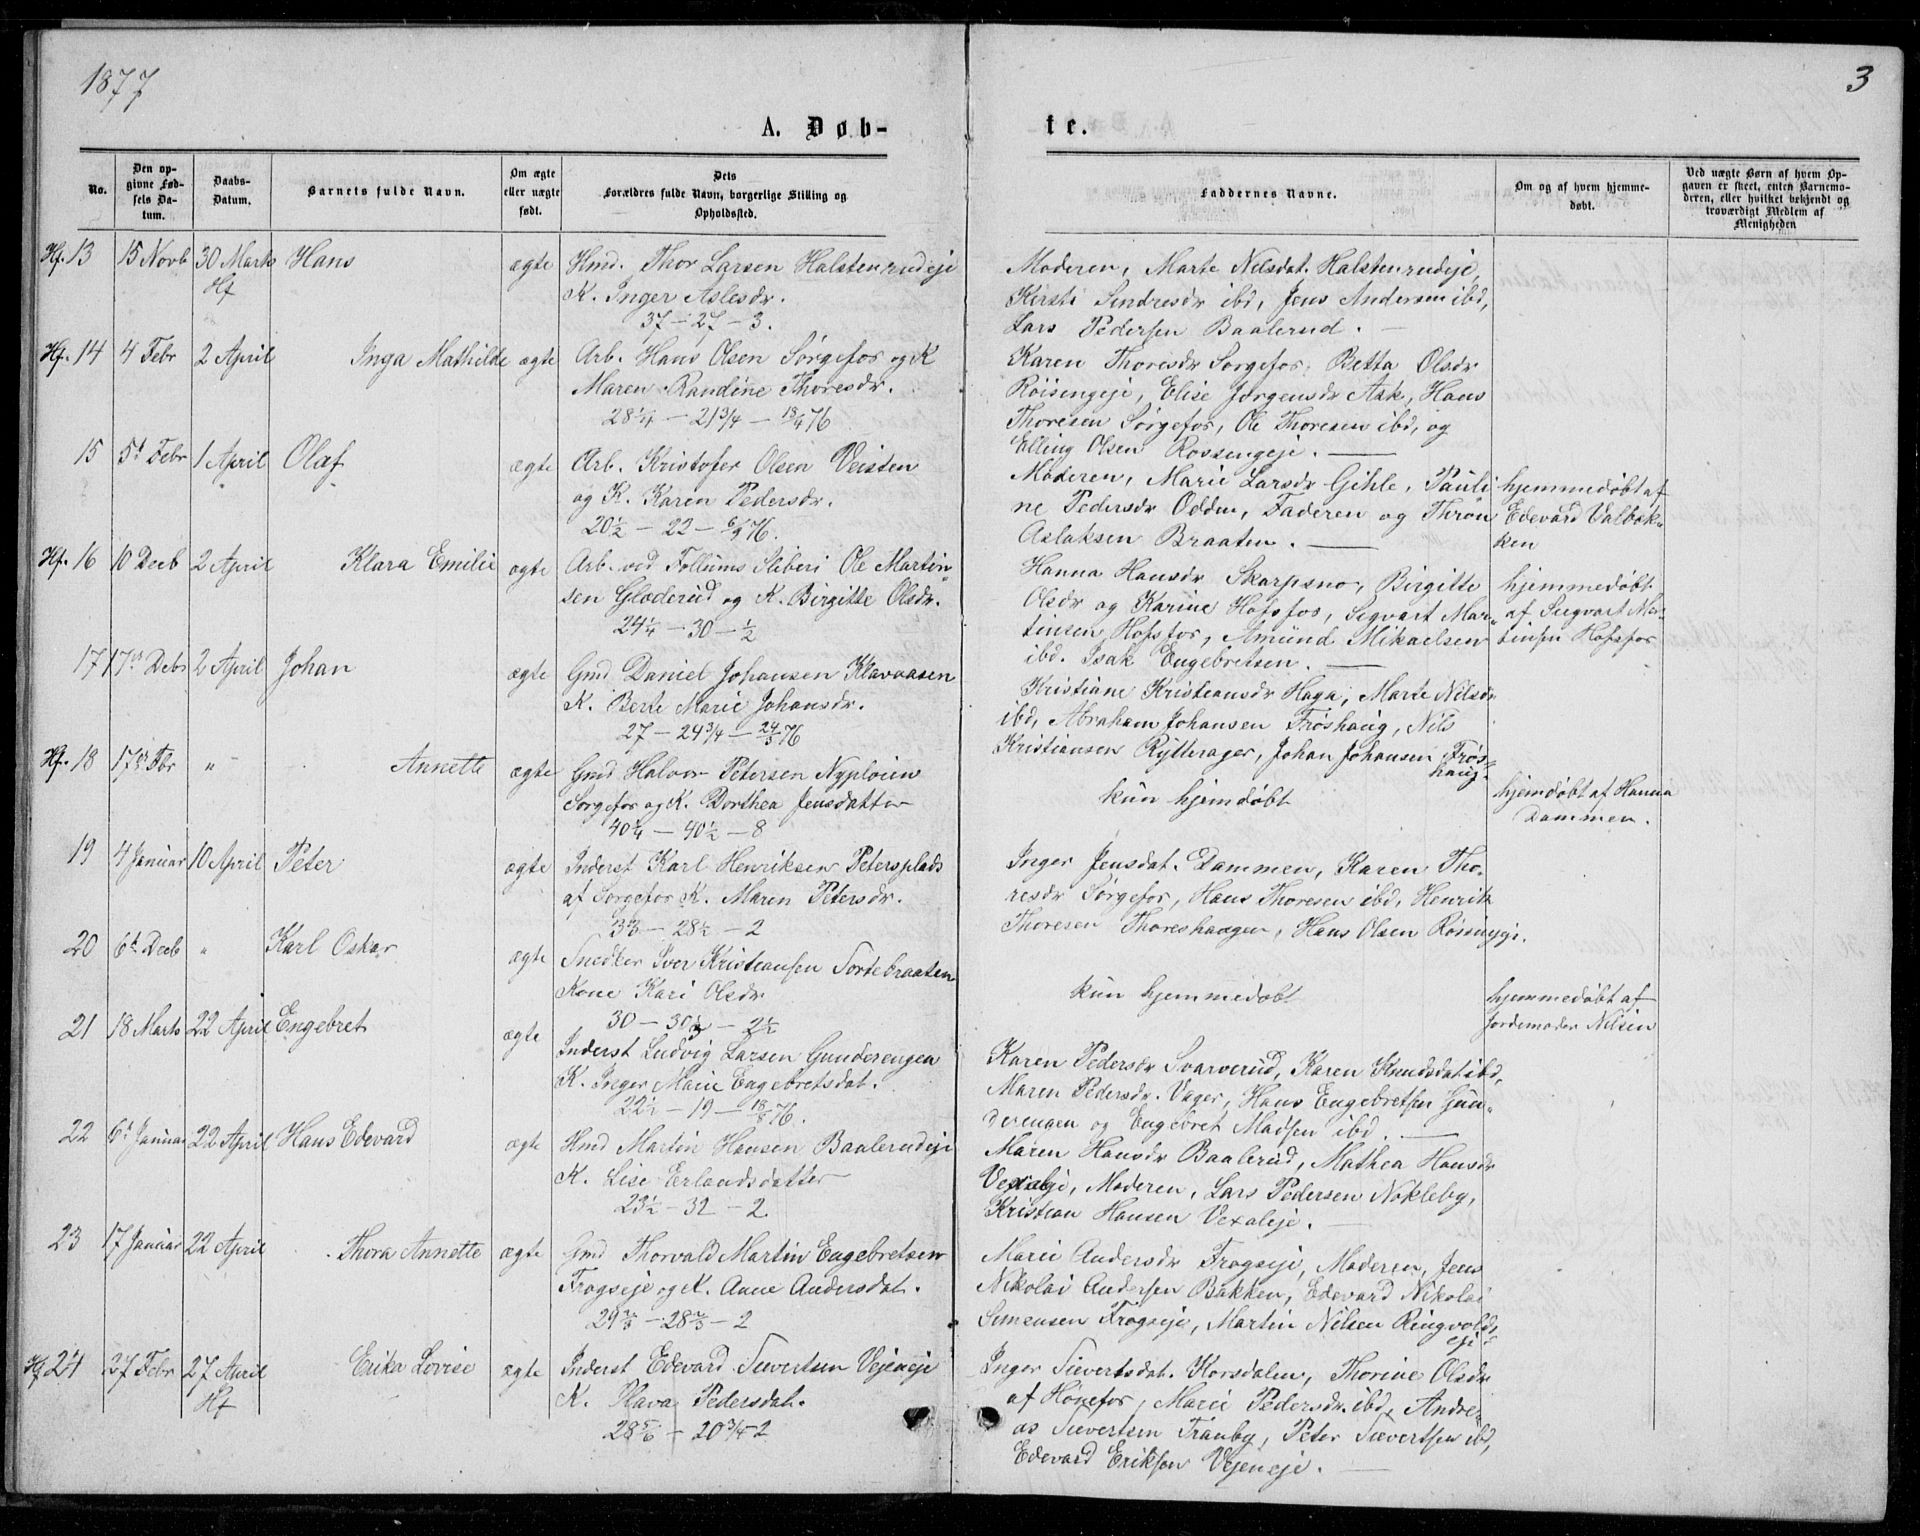 1877
3
A. Døb-
te.
No.
Den opgivne Fødsels Datum.
Daabs-Datum.
Barnets fulde Navn.
Om ægte eller uægte født.
Dets Forældres fulde Navn, borgerlige Stilling og Opholdssted.
Faddernes Navne.
Om og af hvem hjemmedøbt.
Ved uægte Børn af hvem Opgaven er skeet, enten Barnemoderen, eller hvilket bekjendt og troværdigt Medlem af Menigheden
Hf. 13 15 Novb 30 Marts Hans ægte Hmd. Thor Larsen Halstenrudeje
Hf K. Inger Aslesdr.
37 – 27 – 3.
Moderen, Marte Nilsdat. Halstenrudeje,
Kirsti Sindresdr ibd, Jens Andersen ibd,
Lars Pedersen Baalerud. —
Hf. 14 4 Febr 2 April Inga Mathilde ægte Arb. Hans Olsen Sørgefos og K
Maren Randine Thoresdr.
28 1/4 – 21 3/4 – 76
Karen Thoresdr Sørgefos, Betta Olsdr
Røisengeje, Elise Jørgensdr Ask, Hans
Thoresen Sørgefos, Ole Thoresen ibd, og
Elling Olsen Røssengeje. —
15 5t Febr 1 April Olaf ægte Arb. Kristofer Olsen Veisten
og K. Karen Pedersdr.
20 1/2 – 22 – 6/9 76.
Moderen, Marie Larsdr Gihle, Pauli
ne Pedersdr Odden, Faderen og Thron
Aslaksen Braaten. —
hjemmedøbt af
Edevard Valbek-
ken
Hf. 16 10 Decb 2 April Klara Emilie ægte Arb. ved Follums Sliberi Ole Martin-
sen Gladerud og K. Birgitte Olsdr.
24 1/4 – 30 – 1/2
Hanna Hansdr Skarpsno, Birgitte
Olsdr og Karine Hofsfos, Sigvart Mar-
tinsen Hofsfos, Amund Mikaelsen
ibd. Isak Engebretsen. —
hjemmedøbt
af Sigvart Mar-
tinsen Hofsfos
17 17de Decbr 2 April Johan ægte Gmd Daniel Johansen Klavaasen
K. Berte Marie Johansdr.
27 – 24 3/4 – 24/3 76
Kristiane Kristiansdr Haga, Marte Nilsdr
ibd, Abraham Johansen Frøshaug, Nils
Kristiansen Rytterager, Johan Johansen Frøs-
haug.
Hf. 18 17de Fbr " Annette ægte Gmd Halvor Petersen Nypløien
Sørgefos og K. Dorthea Jensdatter
40 1/4 – 40 1/2 – 8
kun hjemdøbt
hjemdøbt af Hanna
Dammen.
19 4 Januar 10 April Peter ægte Inderst Karl Henriksen Petersplads
af Sørgefos K. Maren Petersdr.
33 – 28 1/2 – 2
Inger Jensdat. Dammen, Karen Tho-
resdr Sørgefos, Hans Thoresen ibd, Henrik
Thoresen Thoreshaugen, Hans Olsen
20 6t Decb " Karl Oskar ægte Snedker Iver Kristiansen Sortebraaten
Kone Kari Olsdr
30 – 30 – 2 1/2
kun hjemmedøbt
hjemmedøbt af
Jordemoder Nilsen
21 18 Marts 22 April Engebret ægte Inderst Ludvig Larsen Gunderengen
K. Inger Marie Engebretsdat.
22 1/2 – 19 – 18/8 76.
Karen Pedersdr Svarverud, Karen Knudsdat ibd,
Maren Pedersdr. Vager, Hans Engebretsen Gun-
derengen og Engebret Madsen ibd. —
22 6t Januar 22 April Hans Edevard ægte Hmd Martin Hansen Baalerudeje
K. Lise Erlandsdatter
23 1/2 – 32 – 2.
Maren Hansdr Baalerud, Mathea Hansdr
Vexaleje, Moderen, Lars Pedersen Nokleby,
Kristian Hansen Vexaleje. —
23 17 Januar 22 April Thora Annette ægte Gmd Thorvald Martin Engebretsen
Frogseje og K. Anne Andersdat.
29 – 28 – 2
Marie Andersdr Frogseje, Moderen, Jens
Nikolai Andersen Bakken, Edevard Nikolai
Simensen Frogseje, Martin Nilsen Ringvolds
eje
Hf 24 27 Febr 27 April Erika Lovise ægte Inderst Edevard Sievertsen Vejeneje
Hf K. Klara Pedersdat.
28 5/6 – 20 3/4 – 2
Inger Sievertsdat. Korsdalen, Thorine Olsdr
af Hønefos, Marie Pedersdr. ibd, Andre-
as Sievertsen Tranby, Peter Sievertsen ibd,
Edevard Eriksen Vejeneje. —